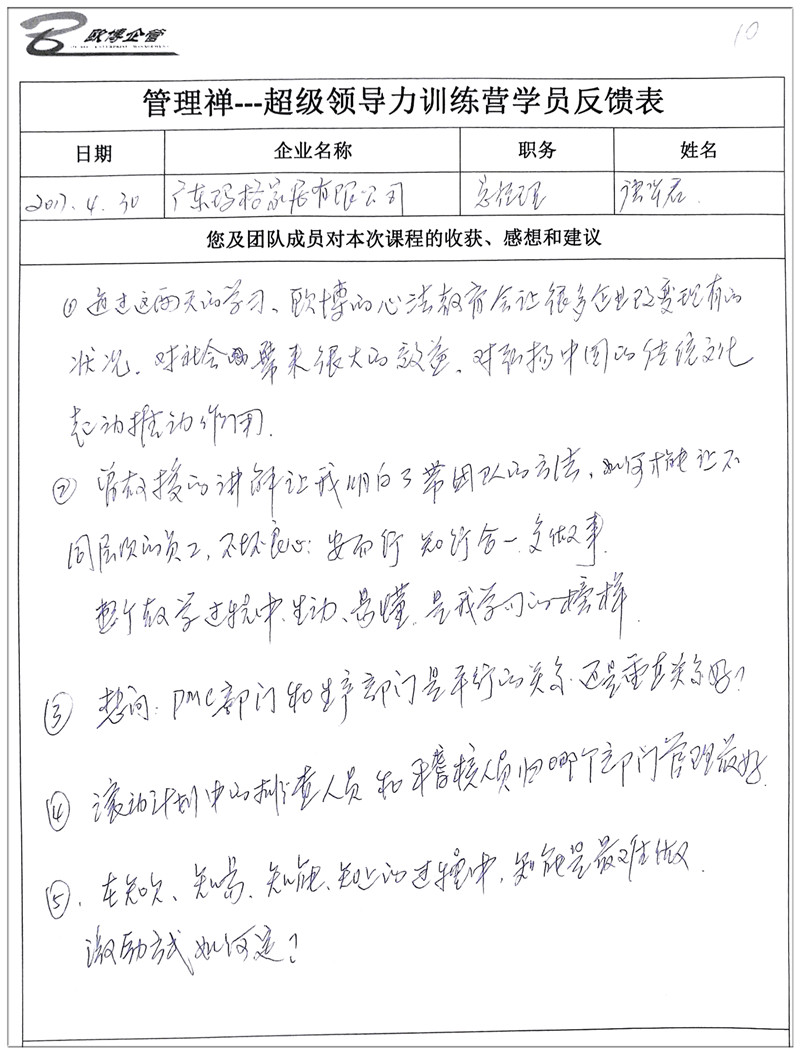 欧博企管
10
管理禅---超级领导力训练营学员反馈表
日期 企业名称 职务 姓名
2017.4.30 广东玛格家居有限公司 总经理
您及团队成员对本次课程的收获、感想和建议
① 通过这两天的学习、欧博的心法教育会让很多企业改变现有的
状况。对社会 带来很大的效益、对弘扬中国的传统文化
起动推动作用.
② 曾教授的讲解让我明白了带团队的方法、如何才能让不
同层次的员工,不坏良心: 安而行 知行合一 做事.
整个教学过程中、生动、易懂、是我学习的榜样.
③ 想问: PMC部门和生产部门是平行的关系 还是垂直关系好?
④ 滚动计划中的排查人员 和稽核人员归哪个部门管理最好.
⑤. 在知欠、知易、知能、知止的过程中, 知能是最难做.
激励方式如何定?